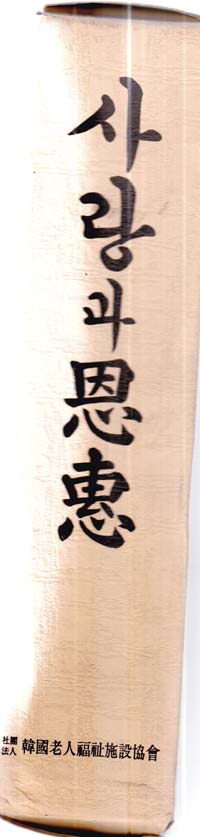 사랑과恩惠
社團法人 韓國老人福祉施設協會